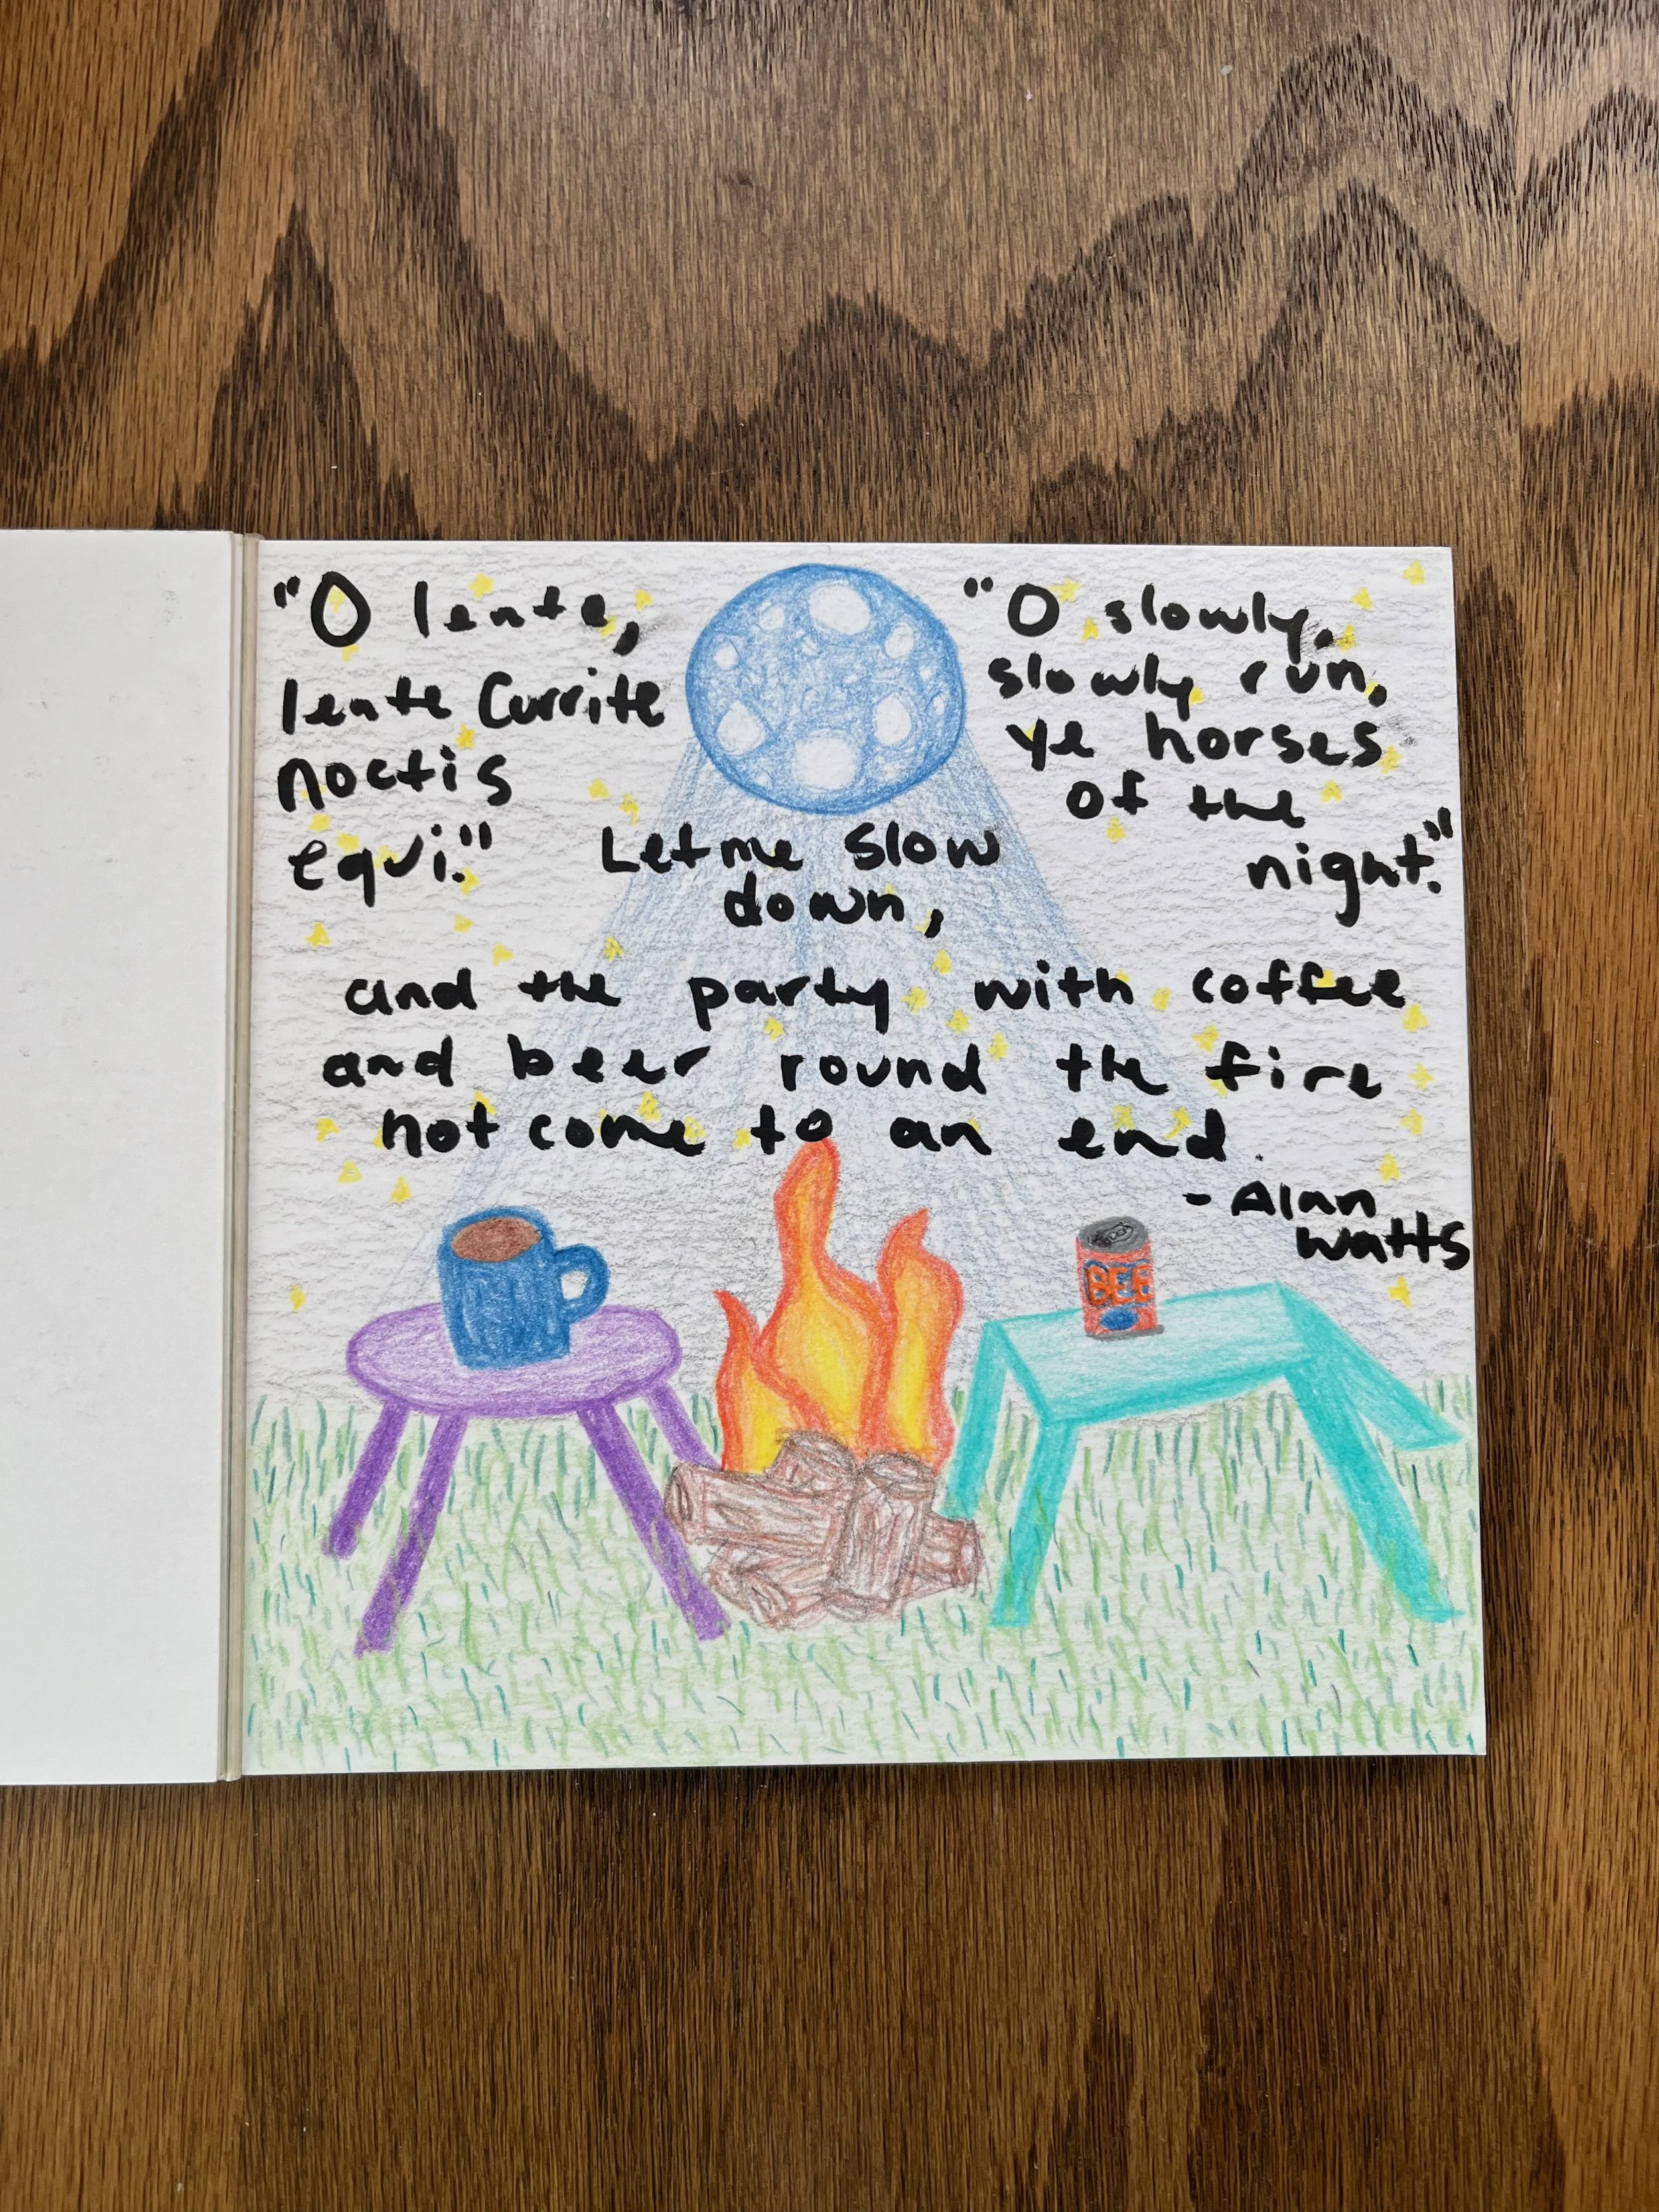 "O lente,
lente Currite
noctis
equi."
"O slowly,
slowly run,
ye horses
of the
night."
Let me slow
down,
and the party with coffee
and beer round the fire
not come to an end.
- Alan
Watts
BEE